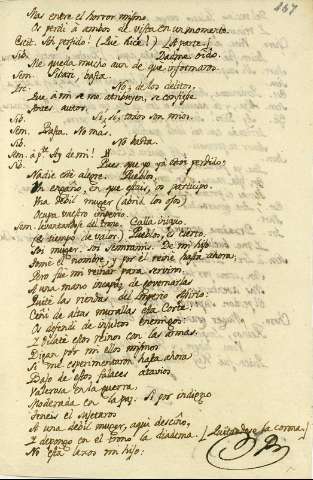 167
Mas entre el horror mismo
Os perdi â ambos de vista en un momento.
Ah perfido! (Què hice!) [A parte.]
Sib. Dadme oído.
Me queda mucho aun de que informaros.
Sem. Sibari, basta.
No, de los delitos,
Que â mi se me atribuyen, se confiese
autor.
Sib. Si, si, todos son mios.
Sem. Basta. No mas.
Sib. No basta.
Sem. â pte. Ay de mi!
Sib. Pues que yo yâ estoy perdido;
Nadie se alegre. Pueblos,
Un engaño, en que estais, os participo.
Una debil muger (abrid los ojos)
Ocupa vuestro imperio.
Sem. levantandose del trono. Calla iniquo.
(Es tiempo de valor) Pueblos, es cierto.
Soi muger: soi Semiramis. De mi hijo
Tomè el nombre, y por èl reinè hasta ahora;
Pero fuè mi reinar para serviros.
A una mano incapàz de governarlas
Quitè las riendas del Imperio Asirio:
Cenì de altas murallas esta Corte:
Os defendì de injustos enemigos:
Y dilatè estos reinos con las armas.
Digan por mi ellos mismos
Si me experimentaron hasta ahora
Bajo de estos falaces atavios
Valerosa en la guerra,
Moderada en la paz: Si por indigno
Teneis el sujetaros
A una debil muger, aqui desciño,
Y depongo en el trono la diadema. [Quitandose la corona.]
No està lexos mi hijo: